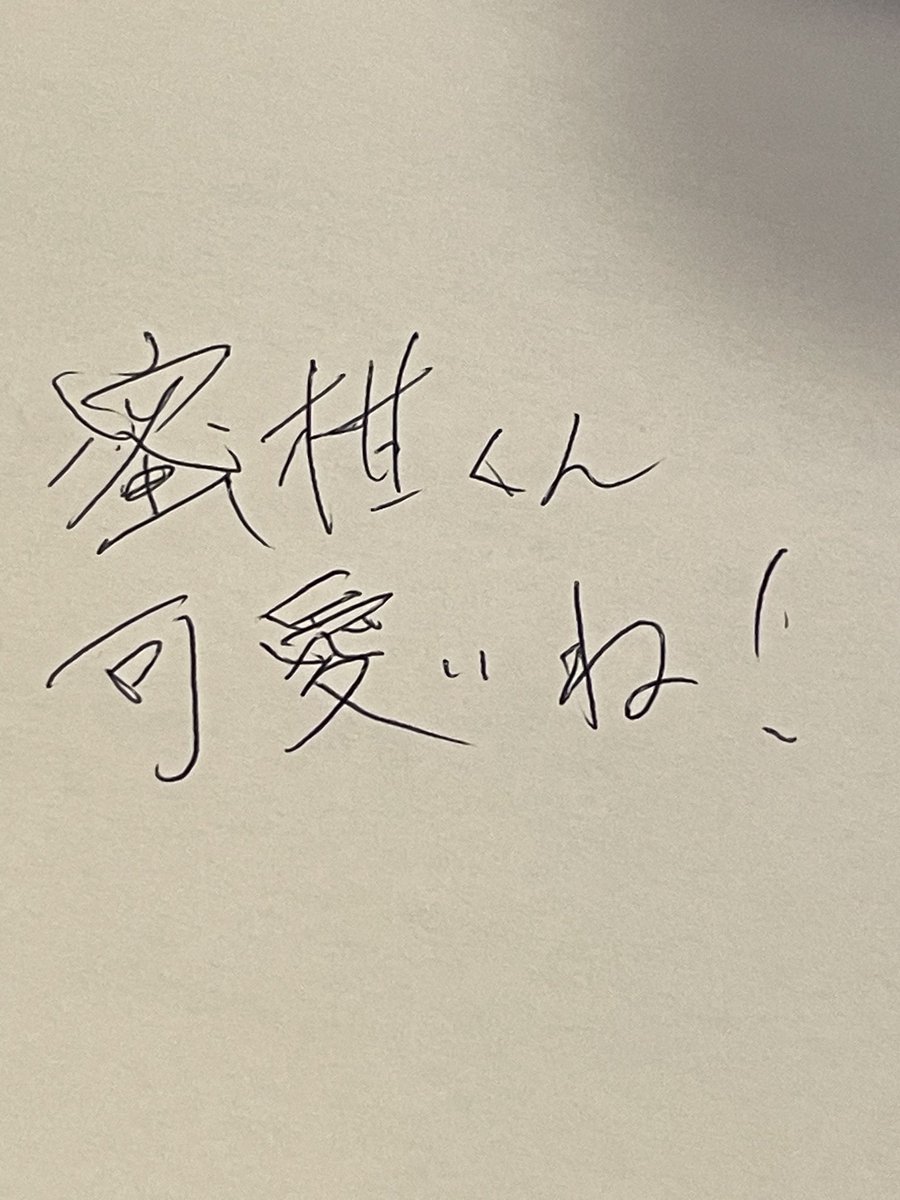 蜜柑くん
可愛いね!